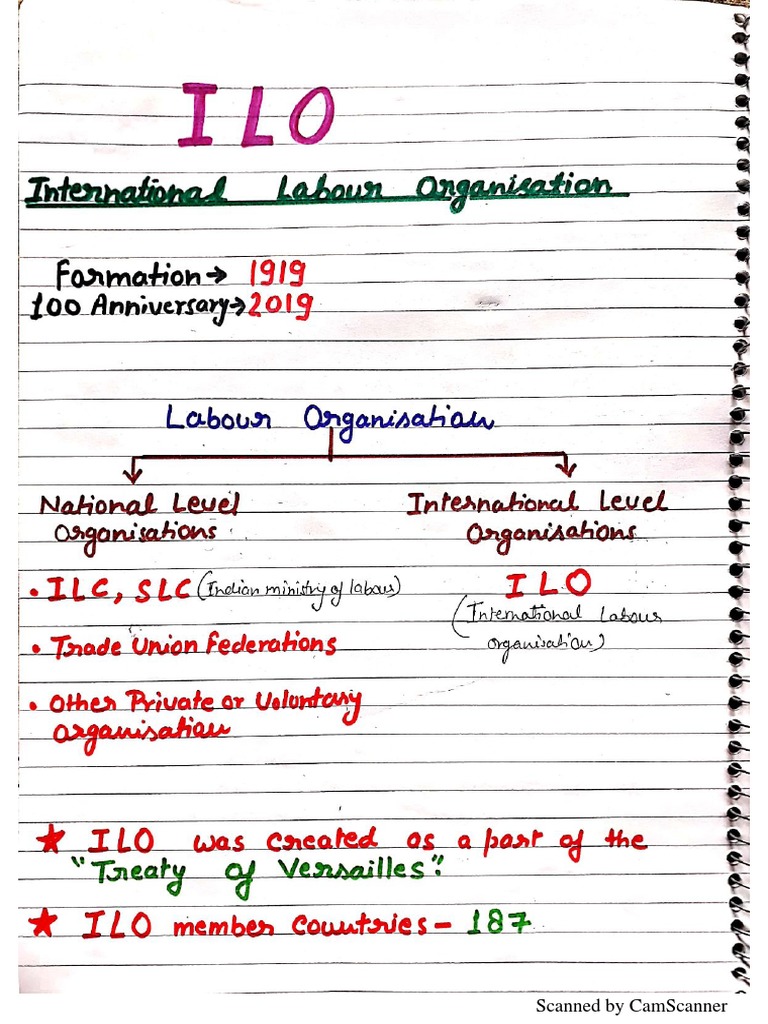 ILO
International Labour Organisation
Formation → 1919
100 Anniversary → 2019
Labour Organisation
National Level
Organisations
International Level
Organisations
• ILC, SLC (Indian ministry of labour)
• Trade Union Federations
• Other Private or Voluntary
Organisation
ILO
(International Labour
organisation)
★ ILO was created as a part of the
"Treaty of Versailles".
★ ILO member Countries - 187
Scanned by CamScanner